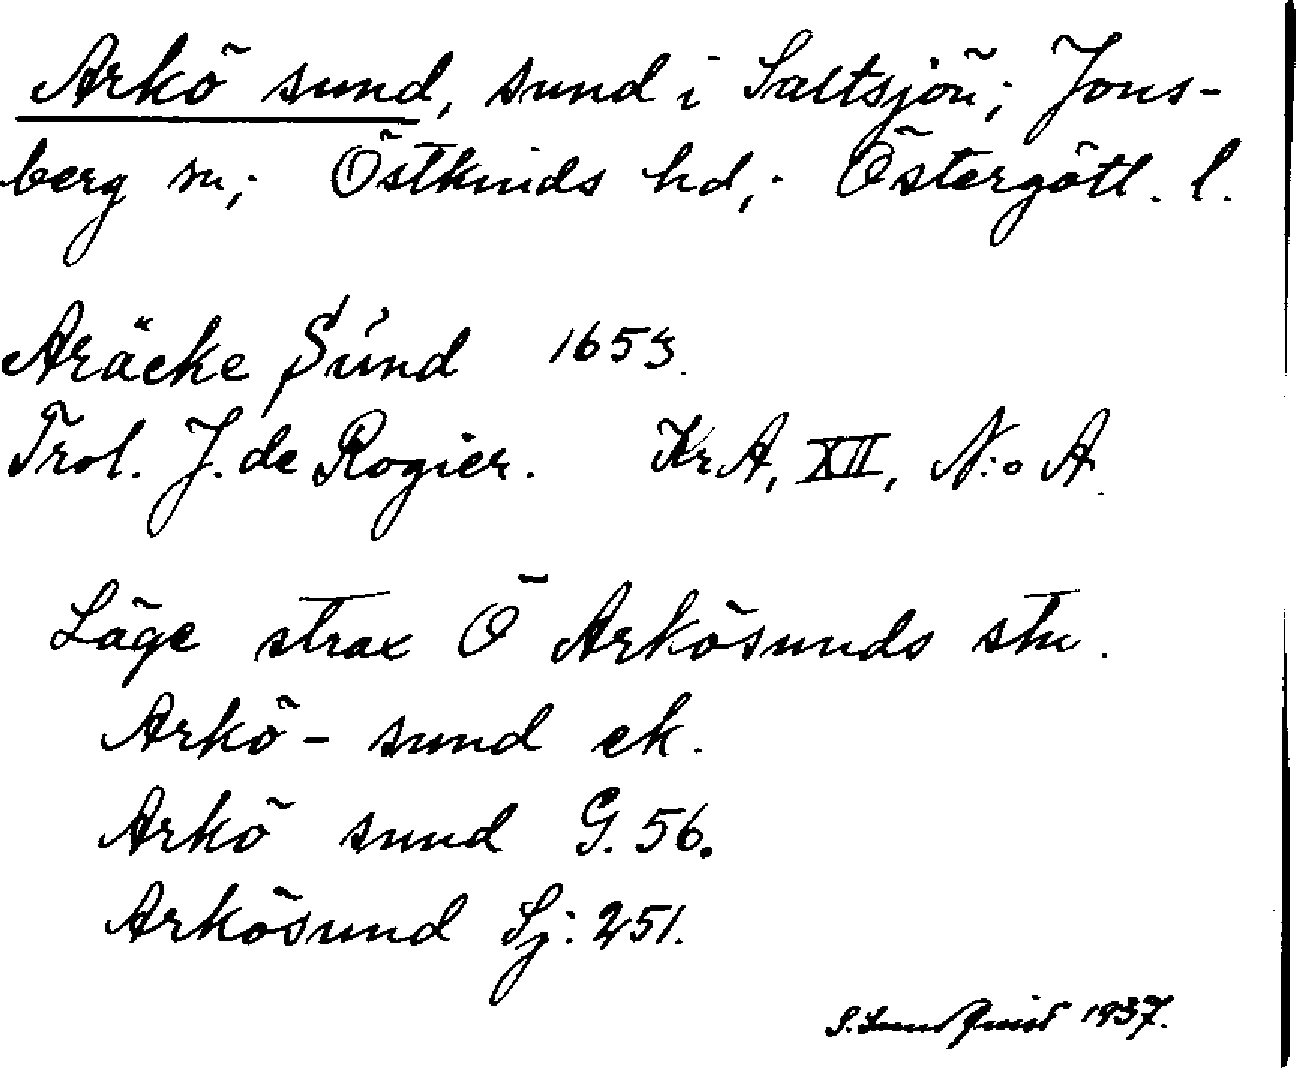 Arkö sund, sund i Saltsjön; Jons-
berg sn; Östkinds hd; Östergötl. l.
Aräcke Sund 1653.
Trol. J. de Rogier. KrA, XII, N:o A.
Läge strax Ö Arkösunds stn.
Arkö-sund ek.
Arkö sund G. 56.
Arkösund Sj: 251.
S. Lundqvist 1937.